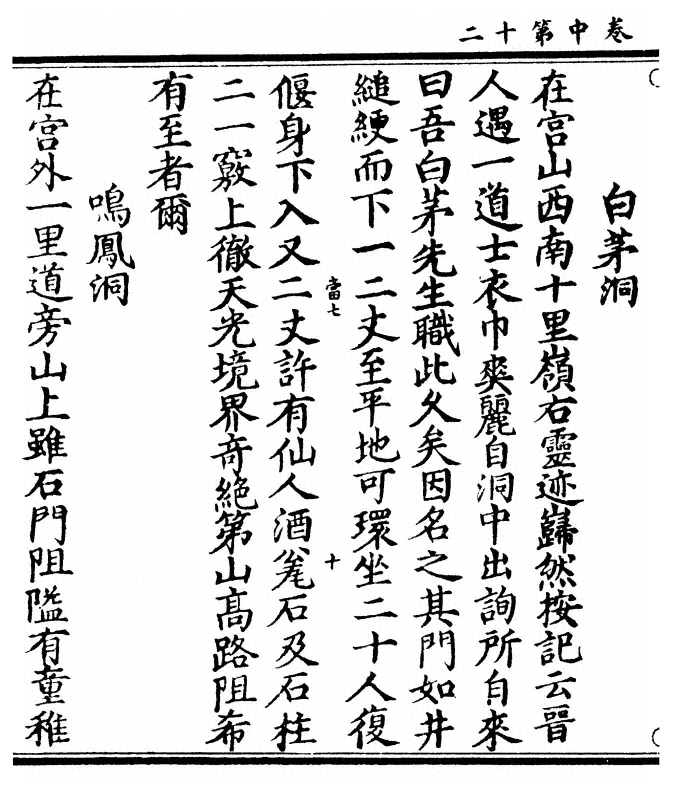 卷中第十二
白茅洞
在宫山西南十里嶺右靈迹巋然按記云晉
人遇一道士衣巾爽麗自洞中出詢所自來
曰吾白茅先生職此久矣因名之其門如井
縋綆而下一二丈至平地可環坐二十人復
當七
十
偃身下入又二丈許有仙人酒瓮石及石柱
二一竅上徹天光境界奇絶第山高路阻希
有至者爾
鳴鳳洞
在宫外一里道旁山上雖石門阻隘有童稚